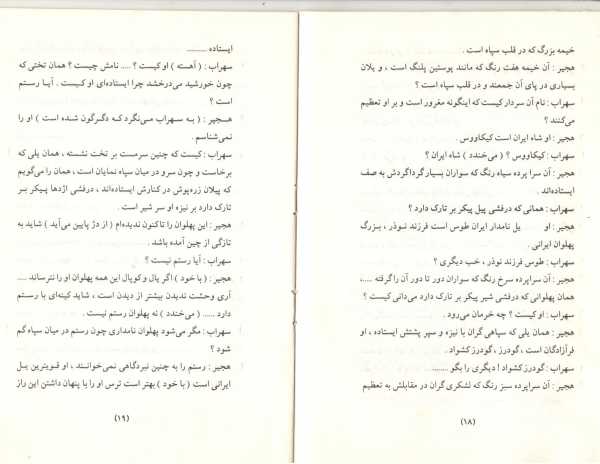 خیمه بزرگ که در قلب سپاه است .
هجیر : آن خیمه هفت رنگ که مانند پوستین پلنگ است ، و یلان
بسیاری در پای آن جمعند و در قلب سپاه است ؟
سهراب : نام آن سردار کیست که اینگونه مغرور است و بر او تعظیم
می‌کنند ؟
هجیر : او شاه ایران است کیکاووس .
سهراب : کیکاووس ؟ ( می‌خندد ) شاه ایران ؟
هجیر : آن سرا پرده سیاه رنگ که سواران بسیار گرداگردش به صف
ایستاده‌اند .
سهراب : همانی که درفشی پیل پیکر بر تارک دارد ؟
هجیر : او یل نامدار ایران طوس است فرزند نوذر ، بـزرگ
پهلوان ایرانی .
سهراب : طوس فرزند نوذر ، خب دیگری ؟
هجیر : آن سراپرده سرخ رنگ که سواران دور تا دور آن را گرفته .....،
همان پهلوانی که درفشی شیر پیکر بر تارک دارد می‌دانی کیست ؟
سهراب : او کیست ؟ چه خرمان می‌رود .
هجیر : همان یلی که سپاهی گران با نیزه و سپر پشتش ایستاده ، او
فرآزادگان است ، گودرز ، گودرز کشواد .
سهراب : گودرز کشواد ! دیگری را بگو .......
هجیر : آن سراپرده سبز رنگ که لشکری گران در مقابلش به تعظیم
(۱۸)
ایستاده .........
سهراب : ( آهسته ) او کیست ؟ .... نامش چیست ؟ همان تختی که
چون خورشید می‌درخشد چرا ایستاده‌ای او کـیست . آیـا رستم
است ؟
هـجیر : ( بـه سـهراب مـی‌نگرد کـه دگـرگون شـده است ) او را
نمی‌شناسم .
سهراب : کیست که چنین سرمست بر تخت نشسته ، همان یلی که
برخاست و چون سرو در میان سپاه نمایان است ، همان را می‌گویم
که پیلان زره‌پوش در کنارش ایستاده‌اند ، درفشی اژدها پیکـر بـر
تارک دارد بر نیزه او سر شیر است .
هجیر : این پهلوان را تاکنون ندیده‌ام ( از دژ پایین می‌آید ) شاید به
تازگی از چین آمده باشد .
سهراب : آیا رستم نیست ؟
هجیر : ( با خود ) اگر یال و کوپال این همه پهلوان او را نترساند ....
آری وحشت ندیدن بیشتر از دیدن است ، شاید کینه‌ای با رستم
دارد ..... ( می‌خندد ) نه پهلوان رستم نیست .
سهراب : مگر می‌شود پهلوان نامداری چون رستم در میان سپاه گم
شود ؟
هجیر : رستم را به چنین نبردگاهی نمی‌خوانـند ، او قـویترین یـل
ایرانی است ( با خود ) بهتر است ترس او را با پنهان داشتن این راز
(۱۹)